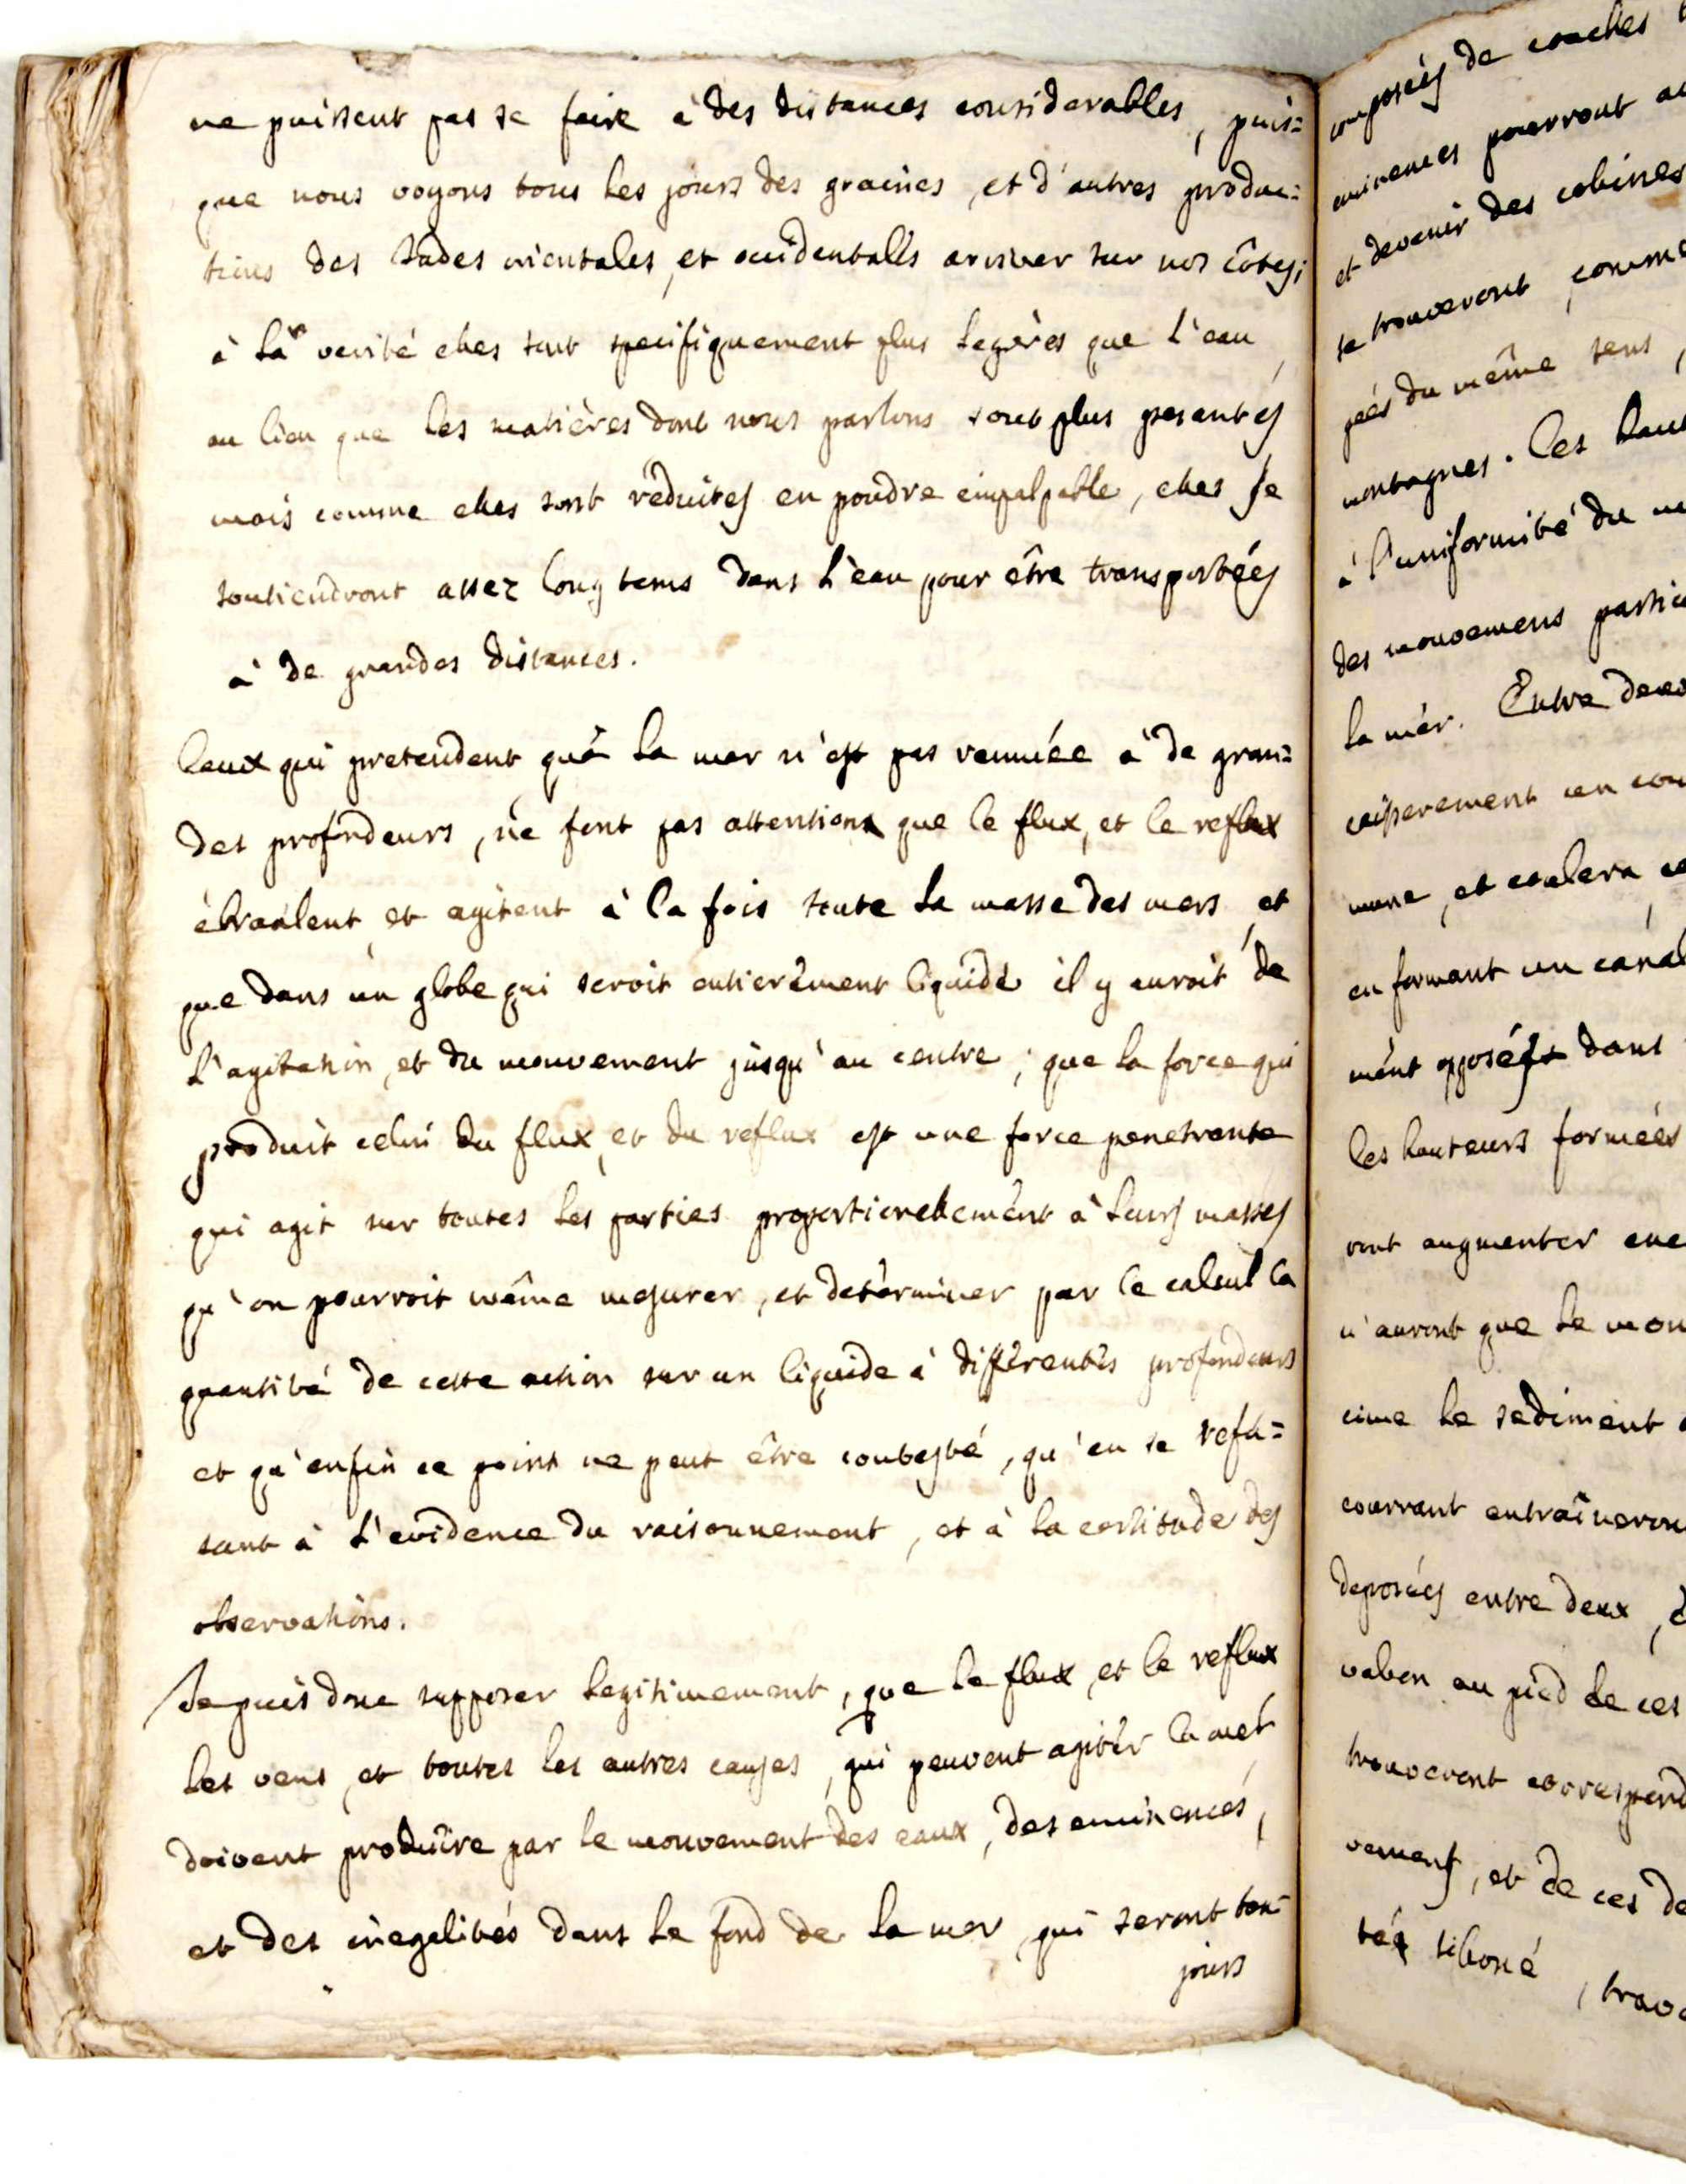 ne puissent pas se faire à des distances considerables, puis=
que nous voyons tous les jours des graines, et d'autres produc=
tions des Indes orientales, et occidentalls arriver sur nos côtes;
à la verité elles sont specifiquement plus legères que l'eau,
au lieu que les matières dont nous parlons sont plus pesantes
mais comme elles sont réduites en poudre impalpable, elles se
soutiendront assez long tems dans l'eau pour être transportées
à de grandes distances.
Ceux qui pretendent que la mer n'est pas remuée à de gran=
des profondeurs, ne font pas attention que le flux, et le reflux
ébranlent, et agitent à la fois toute la masse des mers, et
que dans un globe qui seroit entierèment liquide il y auroit de
l'agitation, et du mouvement jusqu'au centre; que la force qui
produit celui du flux, et du reflux est une force penetrante
qui agit sur toutes les parties proportionellement à leurs masses
qu'on pourroit même mesurer, et determiner par le calcul la
quantité de cette action sur un liquide à différentes profondeurs
et qu'enfin ce point ne peut être contesté, qu'en se refu=
sant à l'evidence du raisonnement, et à la certitude des
observations.
Je puis donc supposer legitimement, que le flux, et le reflux,
les vens, et toutes les autres causes, qui peuvent agiter la mer,
doivent produire par le mouvement des eaux, des eminences,
et des inegalités dans le fond de la mer, qui seront tou=
jours
composées de couches
eminences pourront
et devenir des colines
se trouveront, comme
gées du même sens,
montagnes. Ces hau
à l'uniformité du
des mouvemens partic
la mer. Entre deux
cessairement un cou
mune, et coulera
en formant un canal
ment opposées dans
les hauteurs formées
ront augmenter
n'auront que le mou
cime le sediment
courrant entraîneron
deposées entre deux,
valon au pied de ces
trouveront correspond
vemens, et de ces de
tés sillonné, trave